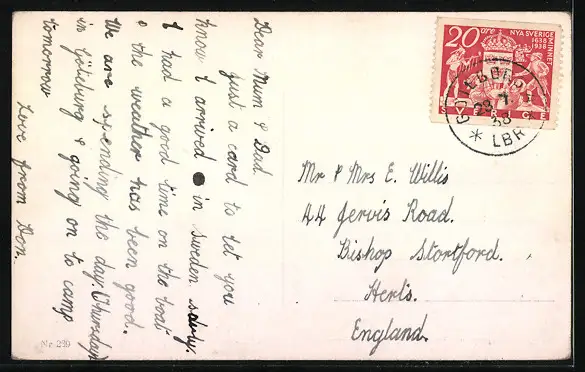 Dear Mum & Dad
Just a card to let you
know I arrived in Sweden safely.
I had a good time on the boat
& the weather has been good.
We are spending the day (Thursday)
in Göteburg & going on to camp
tomorrow
Love from Don.
Nr. 239
20 öre NYA SVERIGE
1638 MINNET
1938
SVERIGE
GÖTEBORG 1
28 7
38
* LBR *
Mr & Mrs E. Willis
44 Jervis Road.
Bishop Stortford.
Herts.
England.